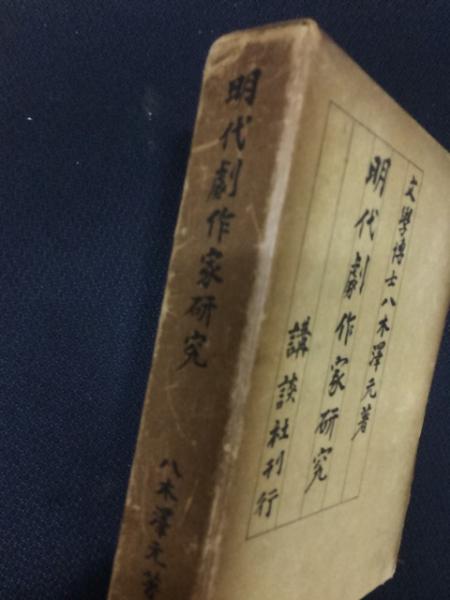 文學博士八木澤元著
明代劇作家研究
講談社刊行
明代劇作家研究
八木澤元著